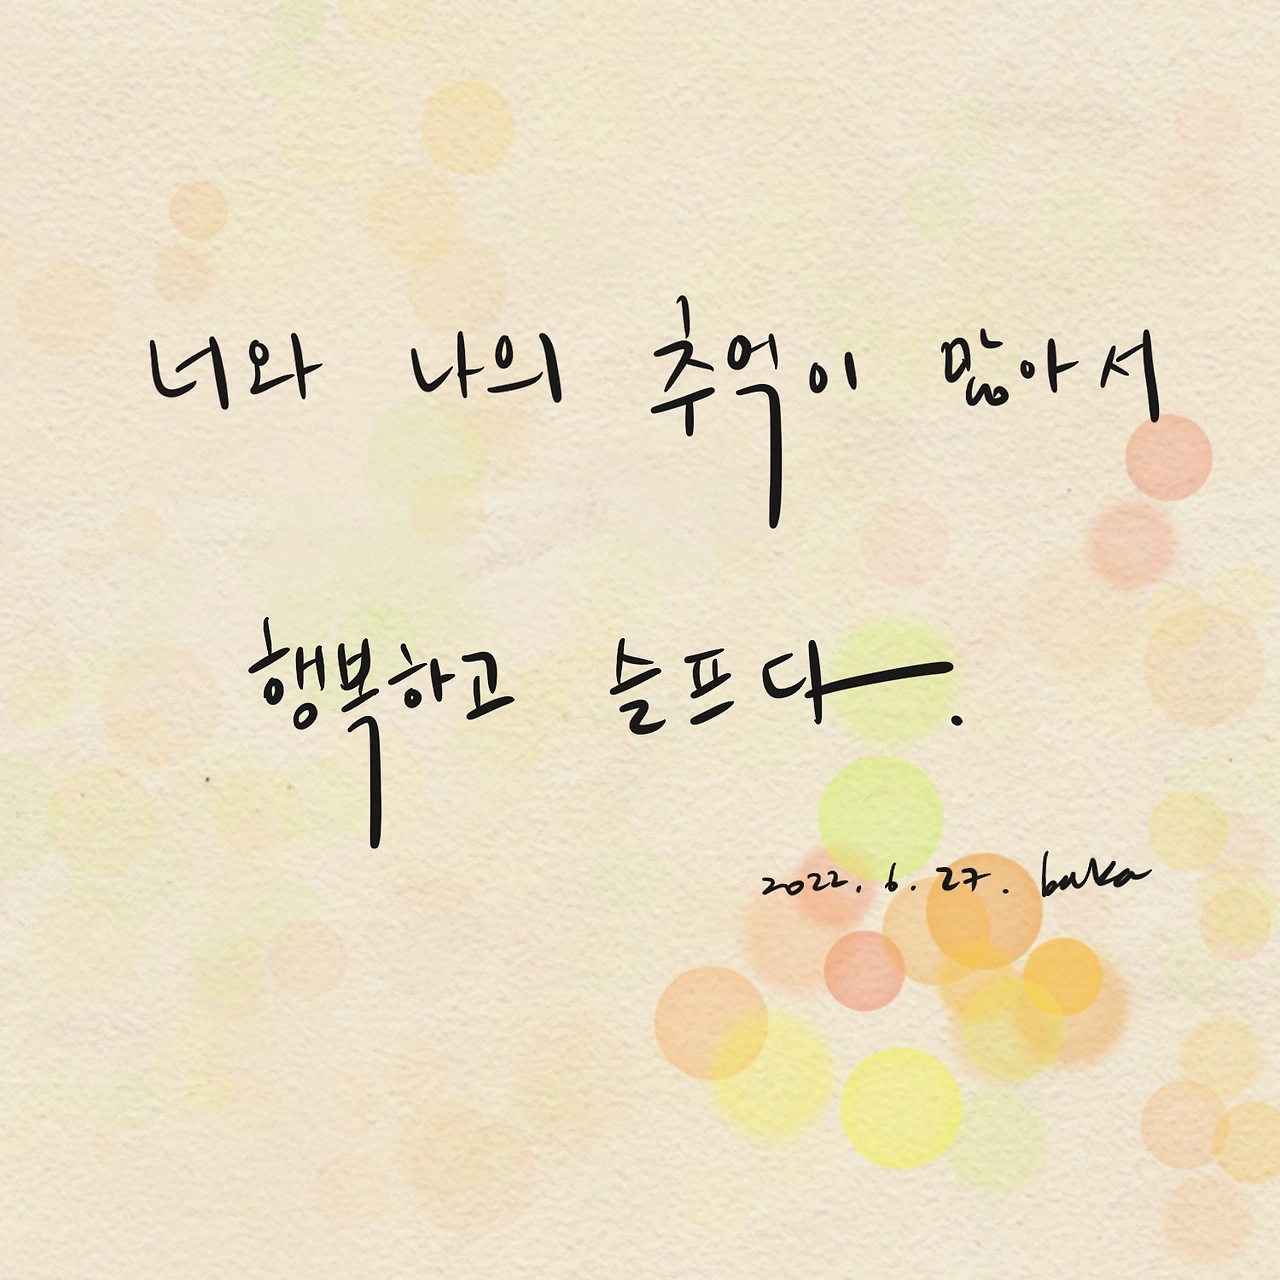 너와 나의 추억이 많아서
행복하고 슬프다.
2022. 6. 27. baka